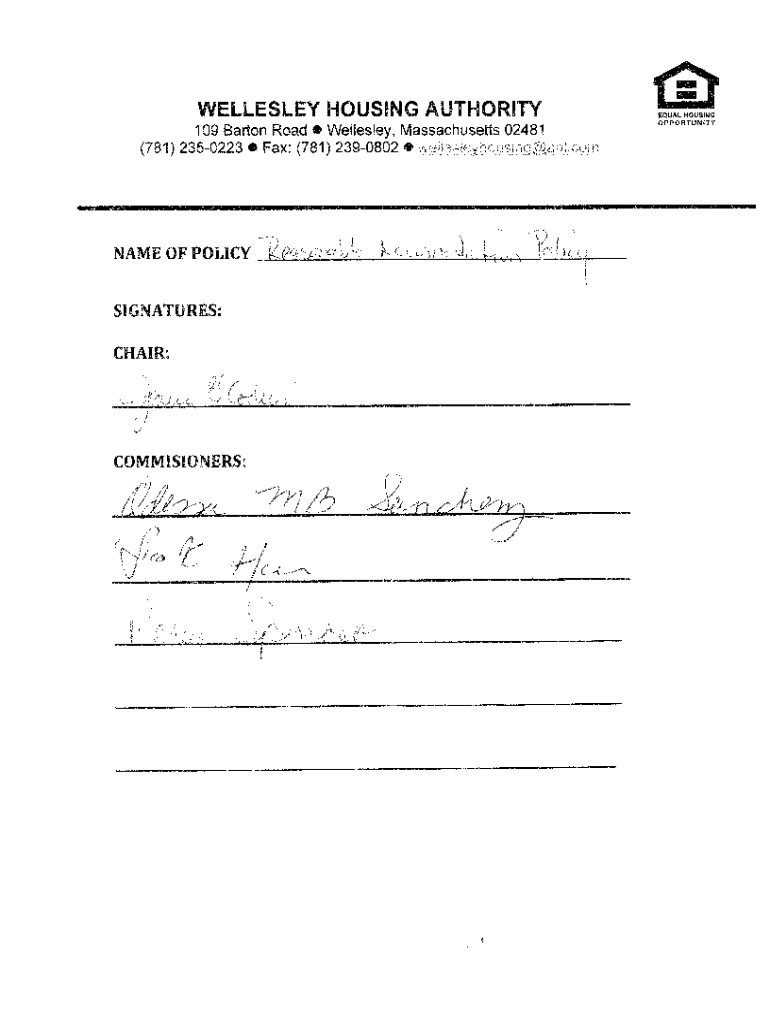 WELLESLEY HOUSING AUTHORITY
109 Barton Road ● Wellesley, Massachusetts 02481
(781) 235-0223 ● Fax: (781) 239-0802 ● wellesleyhousing@aol.com
EQUAL HOUSING
OPPORTUNITY
NAME OF POLICY Reasonable Accomodation Policy
SIGNATURES:
CHAIR:
COMMISIONERS:
Odessa MB Sanchez
Spencer